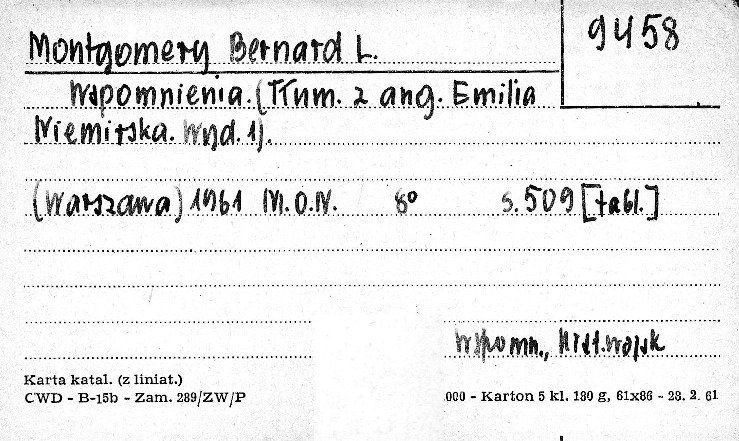 Montgomery Bernard L.
9458
Wspomnienia. (Tłum. z ang. Emilia
Niemirska. Wyd. 1).
(Warszawa) 1961 M.O.N. 8° s. 509 [tabl.]
Wspomn., Hist. wojsk
Karta katal. (z liniat.)
CWD - B-15b - Zam. 289/ZW/P
000 - Karton 5 kl. 180 g, 61x86 - 28. 2. 61